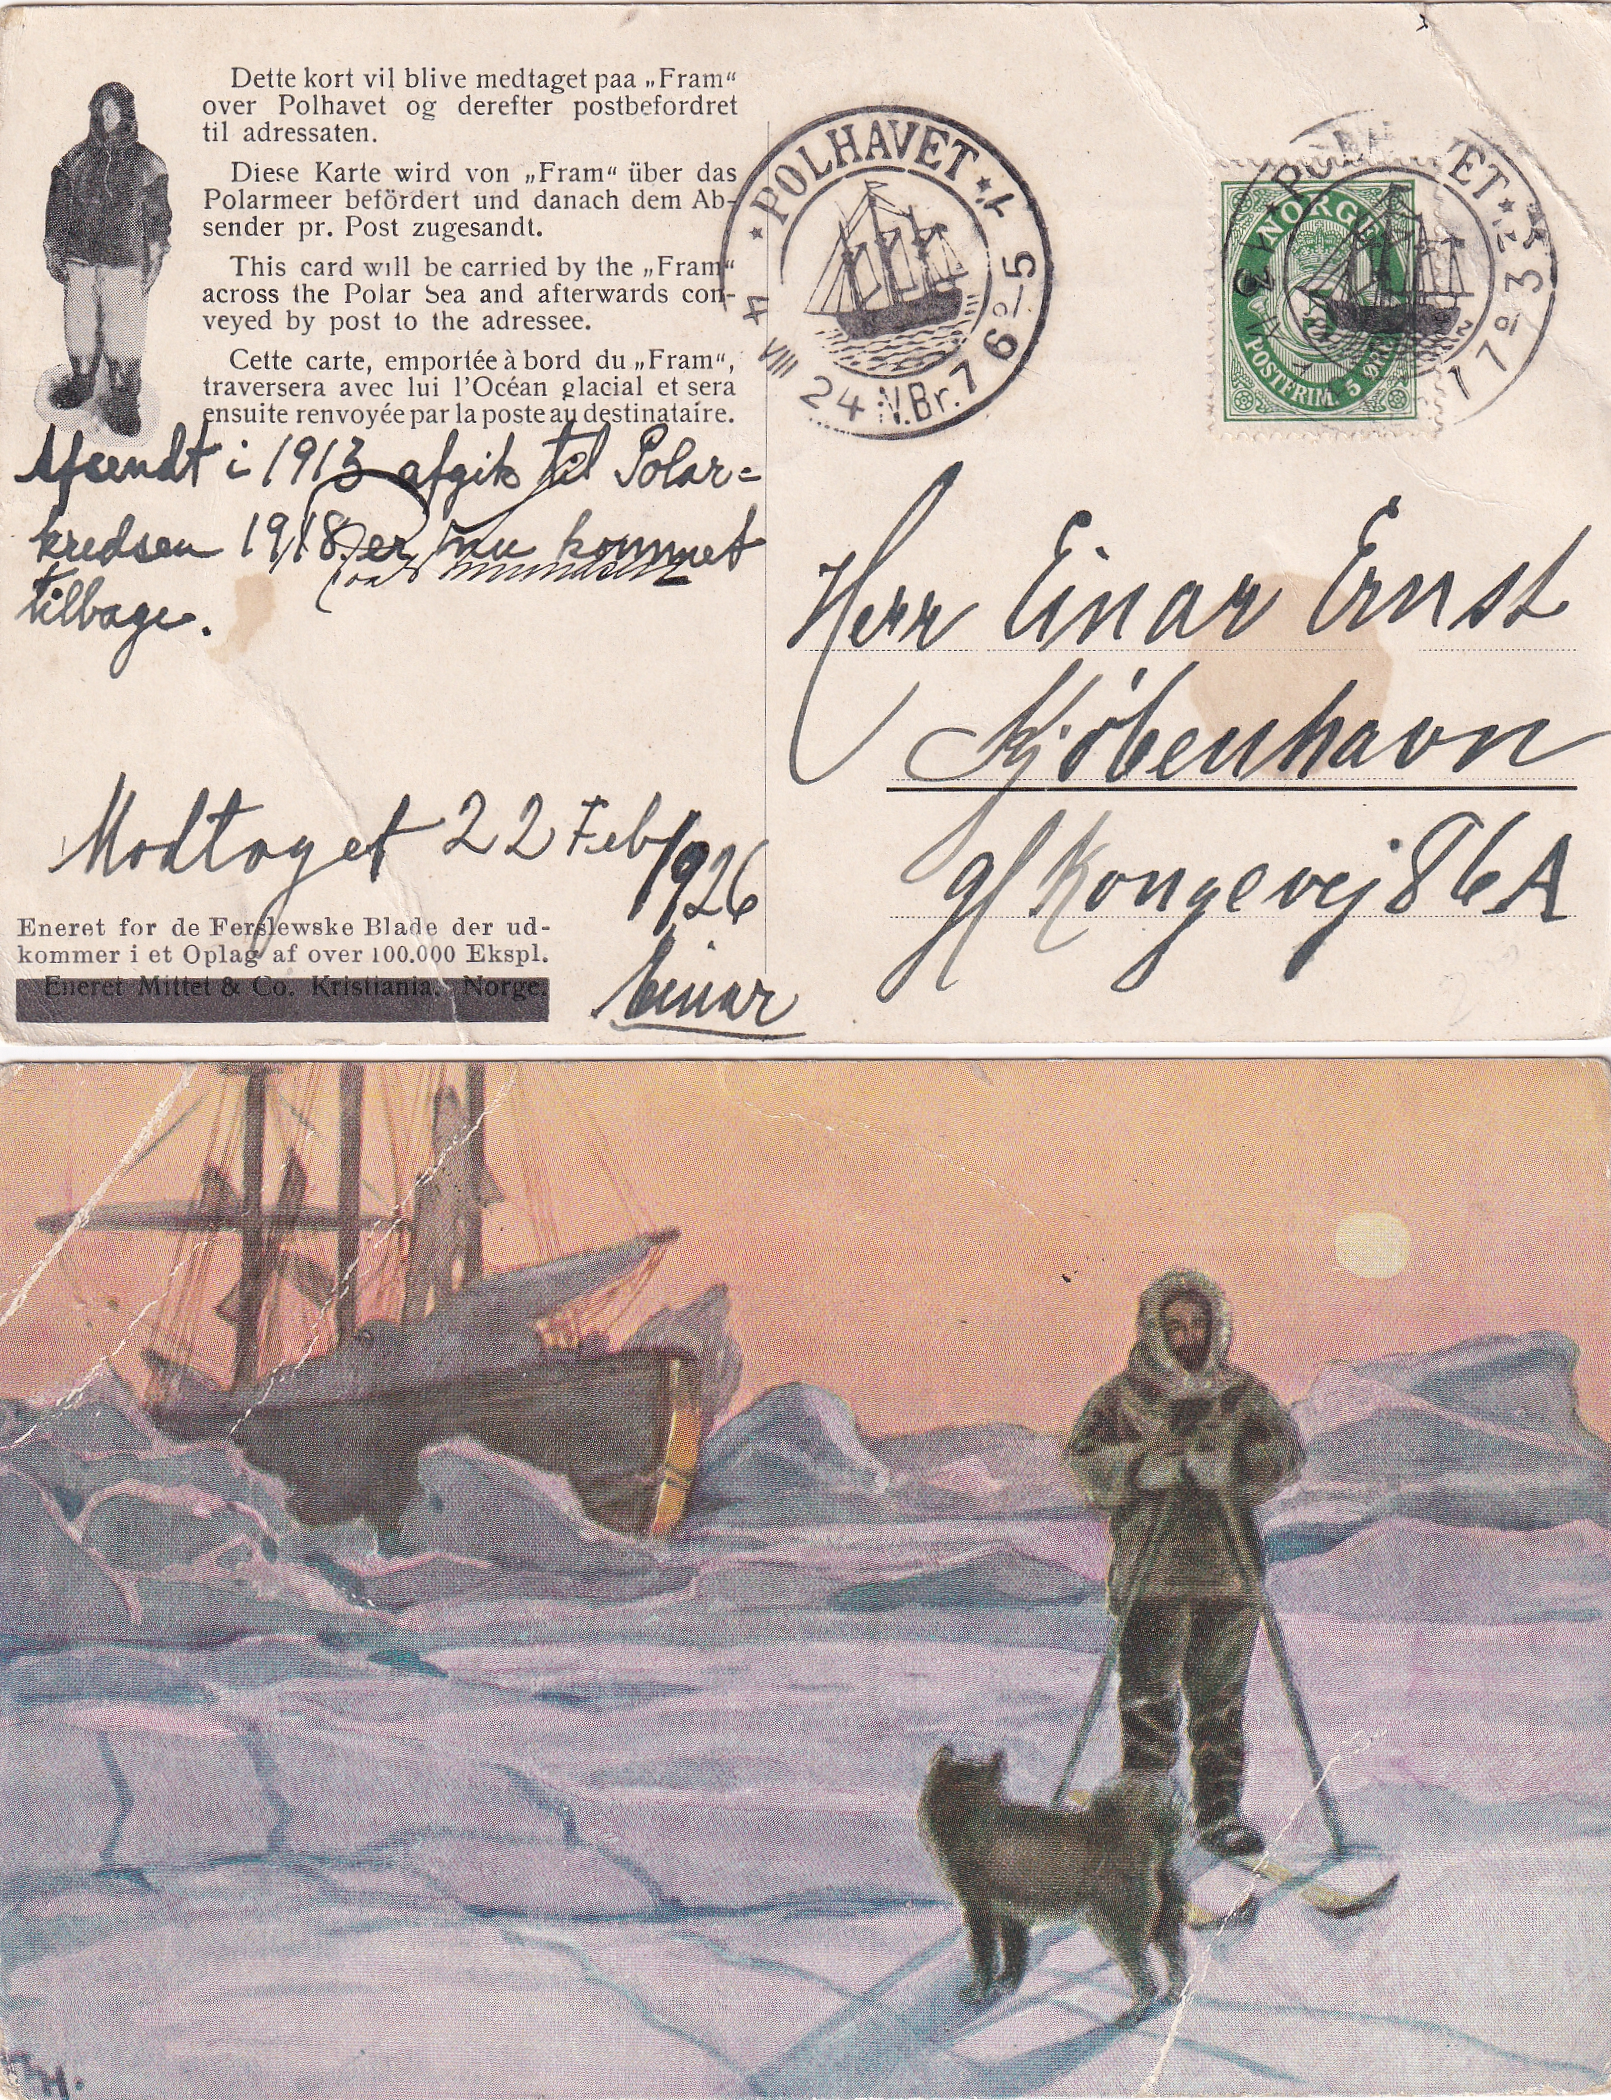 Dette kort vil blive medtaget paa „Fram“
over Polhavet og derefter postbefordret
til adressaten.
Diese Karte wird von „Fram“ über das
Polarmeer befördert und danach dem Ab-
sender pr. Post zugesandt.
This card will be carried by the „Fram“
across the Polar Sea and afterwards con-
veyed by post to the adressee.
Cette carte, emportée à bord du „Fram“,
traversera avec lui l'Océan glacial et sera
ensuite renvoyée par la poste au destinataire.
Afsendt i 1913 afgik til Polar=
kredsen 1918. er nu kommet
tilbage.
Modtaget 22 Feb/1926
Einar
Eneret for de Ferslewske Blade der ud-
kommer i et Oplag af over 100.000 Ekspl.
Eneret Mittet & Co. Kristiania. Norge.
POLHAVET
4 VIII 24 N.Br. 76°-5
NORGE
POSTFRIM. 5 ØRE
Herr Einar Ernst
Kjöbenhavn
Gl Kongevej 86A